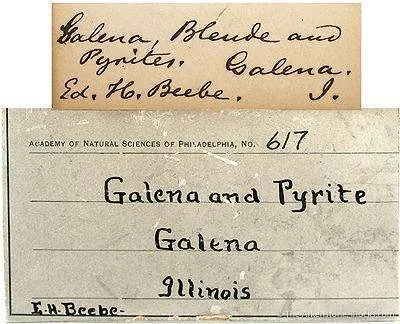 Galena, Blende and
Pyrites. Galena.
Ed. H. Beebe. I.
ACADEMY OF NATURAL SCIENCES OF PHILADELPHIA, No. 617
Galena and Pyrite
Galena
Illinois
E.H. Beebe-